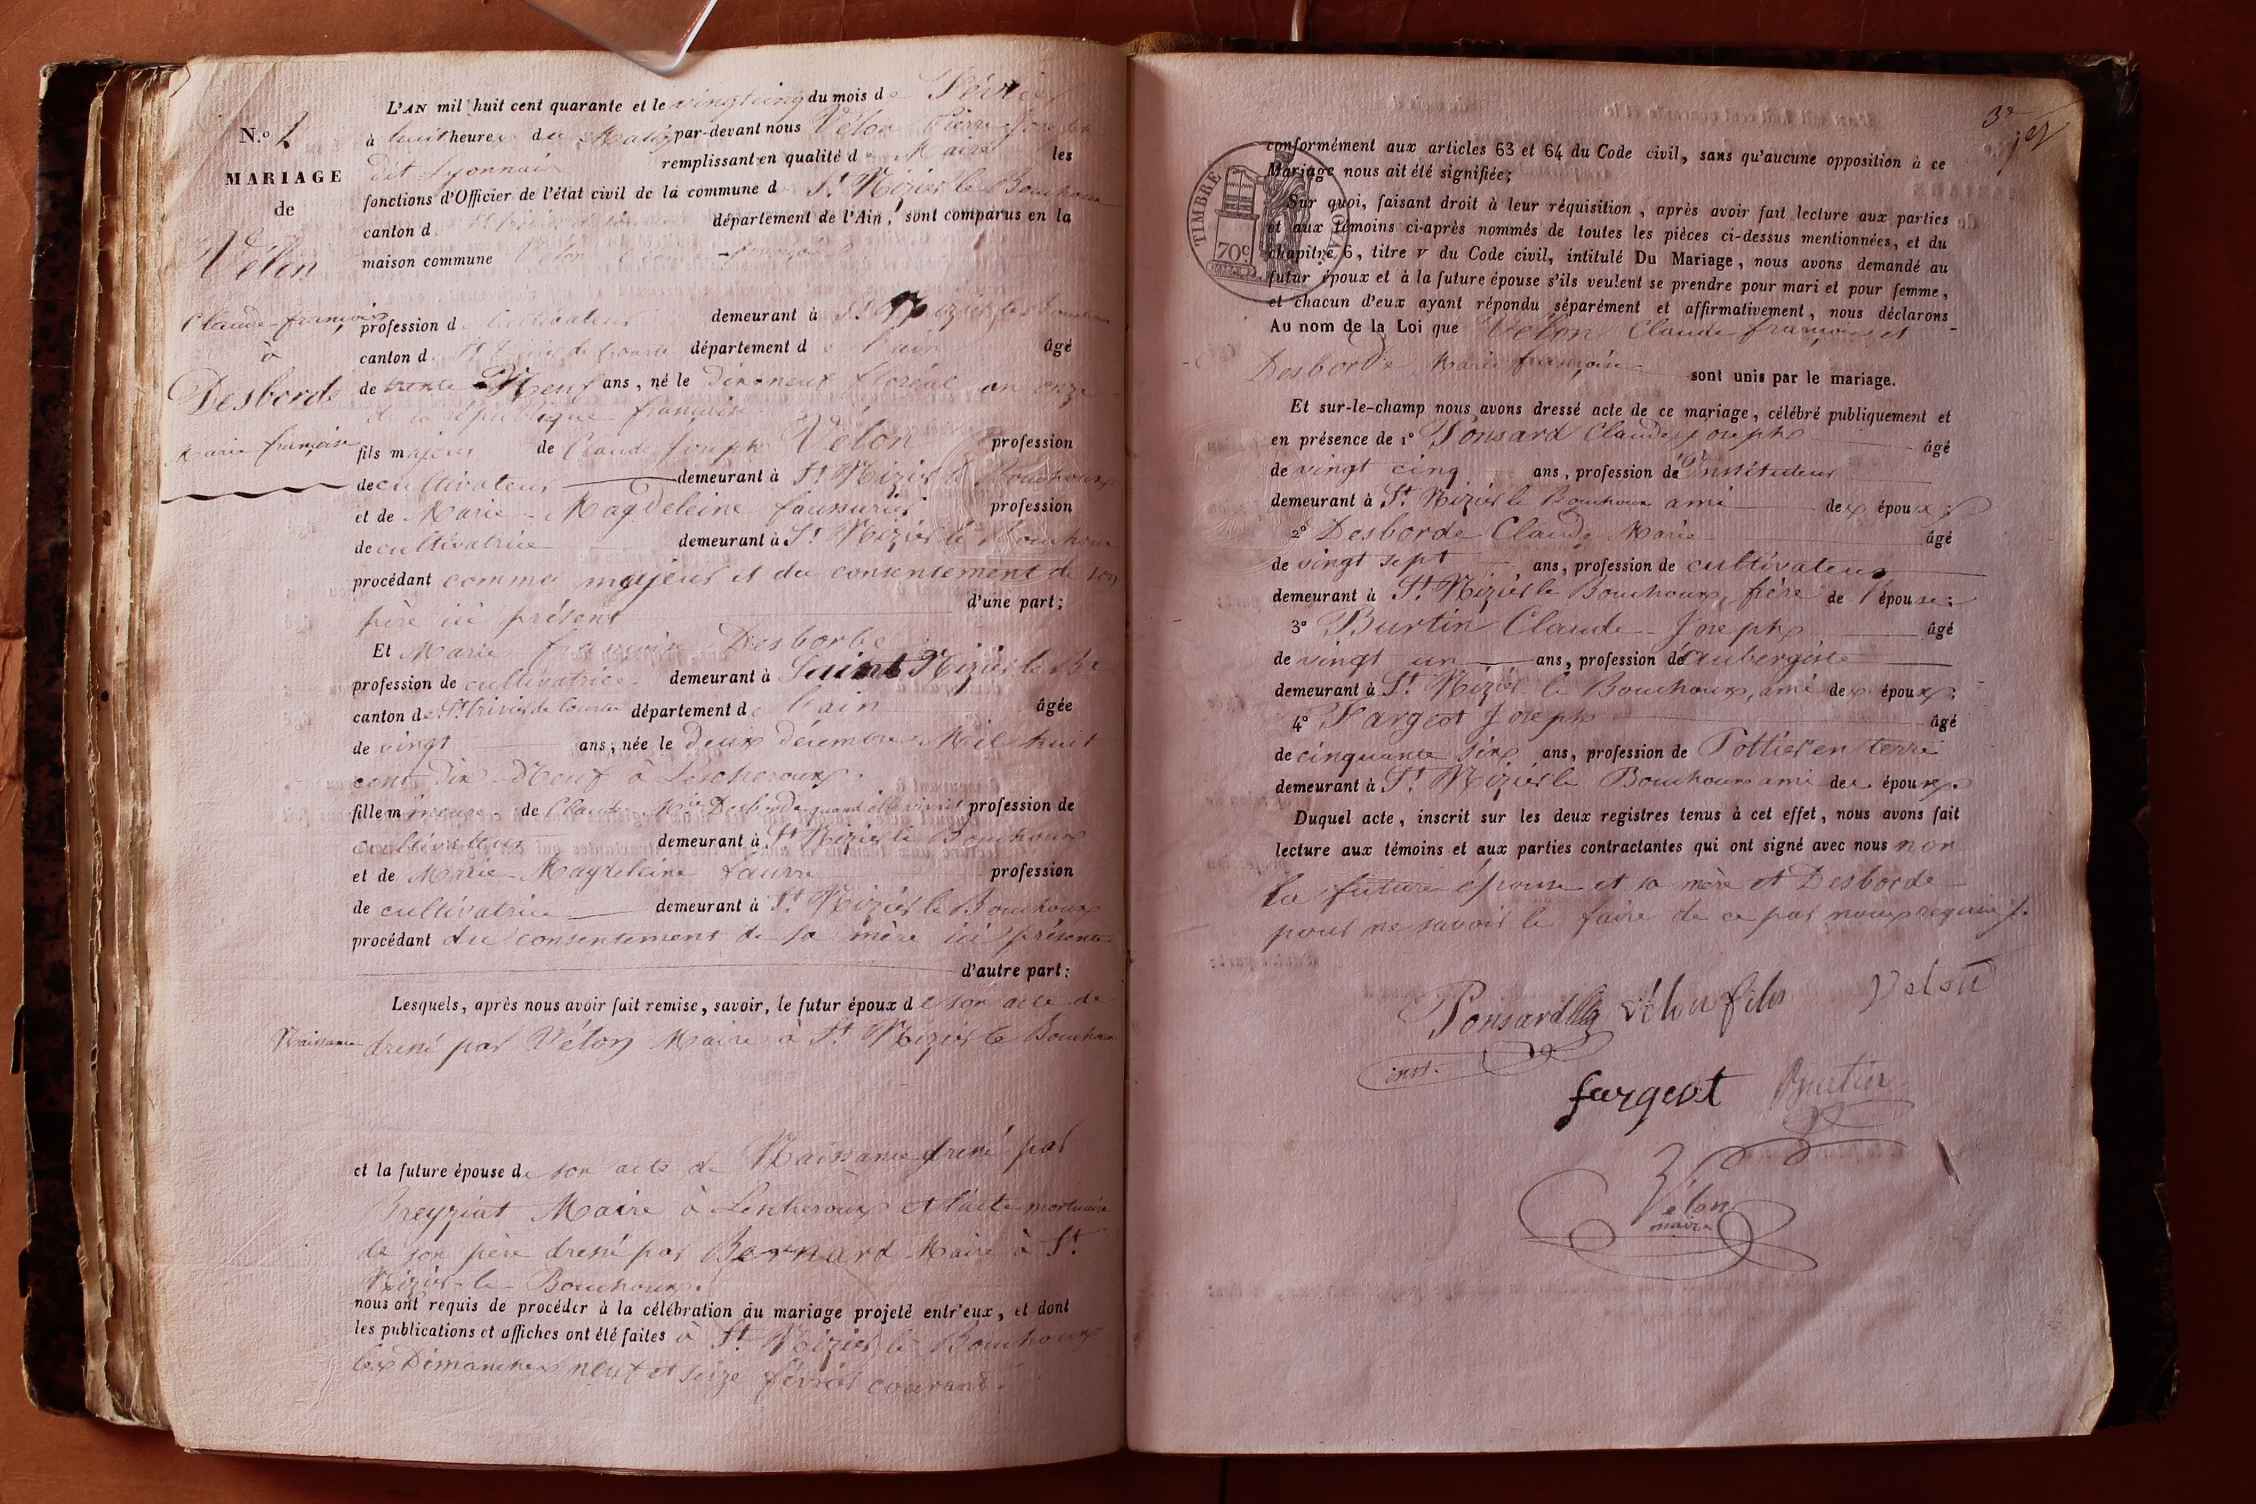 L'AN mil huit cent quarante et le vingt cinq du mois de Février
N.o 2
à huit heures du Matin par-devant nous Vélon Pierre Joseph
dit Lyonnais remplissant en qualité de Maire les
MARIAGE
fonctions d'Officier de l'état civil de la commune d St Nizier le Bouchoux
de
canton d département de l'Ain, sont comparus en la
Vélon
maison commune Vélon Claude françois
Claude françois
profession d Cultivateur demeurant à St Nizier le Bouchoux
à
canton d St Trivier de Courtes département de l'ain âgé
Desborde
de trente Neuf ans, né le Dix neuf floréal an onze
de la république française
Marie françoise
fils majeur de Claude Joseph Vélon profession
de cultivateur demeurant à St Nizier le Bouchoux
et de Marie Magdeleine profession
de cultivatrice demeurant à St Nizier le Bouchoux
procédant comme majeur et du consentement de son
père ici présent d'une part;
Et Marie françoise Desborde
profession de cultivatrice demeurant à Saint Nizier le Bx
canton de St trivier de Courtes département de l'ain âgée
de vingt ans, née le deux décembre Mil huit
cent Dix Neuf à Lescheroux.
fille mineure de Claude Mie Desborde quand il profession de
cultivateur demeurant à St Nizier le Bouchoux
et de Marie Magdeleine favre profession
de cultivatrice demeurant à St Nizier le Bouchoux
procédant du consentement de sa mère ici présente
d'autre part:
Lesquels, après nous avoir fait remise, savoir, le futur époux de son acte de
Naissance dressé par Vélon Maire à St Nizier le Bouchoux
et la future épouse de son acte de Naissance dressé par
Breyziat Maire à Lescheroux et l'acte mortuaire
de son père dressé par Bernard Maire à St
Nizier-le-Bouchoux.
nous ont requis de procéder à la célébration du mariage projeté entr'eux, et dont
les publications et affiches ont été faites à St Nizier le Bouchoux
les Dimanches neuf et seize février courant.
conformément aux articles 63 et 64 du Code civil, sans qu'aucune opposition à ce
Mariage nous ait été signifiée;
TIMBRE
70c
Sur quoi, faisant droit à leur réquisition, après avoir fait lecture aux parties
et aux témoins ci-après nommés de toutes les pièces ci-dessus mentionnées, et du
chapitre 6, titre v du Code civil, intitulé Du Mariage, nous avons demandé au
futur époux et à la future épouse s'ils veulent se prendre pour mari et pour femme,
et chacun d'eux ayant répondu séparément et affirmativement, nous déclarons
Au nom de la Loi que Vélon Claude françois et
Desborde Marie françoise sont unis par le mariage.
Et sur-le-champ nous avons dressé acte de ce mariage, célébré publiquement et
en présence de 1o Ponsard Claude joseph âgé
de vingt cinq ans, profession de Instituteur
demeurant à St Nizier le Bouchoux ami des époux;
2o Desborde Claude Marie âgé
de vingt sept ans, profession de cultivateur
demeurant à St Nizier le Bouchoux, frère de l'épouse;
3o Burtin Claude Joseph âgé
de vingt un ans, profession de aubergiste
demeurant à St Nizier le Bouchoux, ami des époux;
4o Fargeot Joseph âgé
de cinquante six ans, profession de Pottier en terre
demeurant à St Nizier le Bouchoux ami des époux.
Duquel acte, inscrit sur les deux registres tenus à cet effet, nous avons fait
lecture aux témoins et aux parties contractantes qui ont signé avec nous non
la future épouse et sa mère et Desborde
pour ne savoir le faire de ce par nous requis.
Ponsard vélon fils Velon
inst.
fargeot Burtin
Vélon
maire